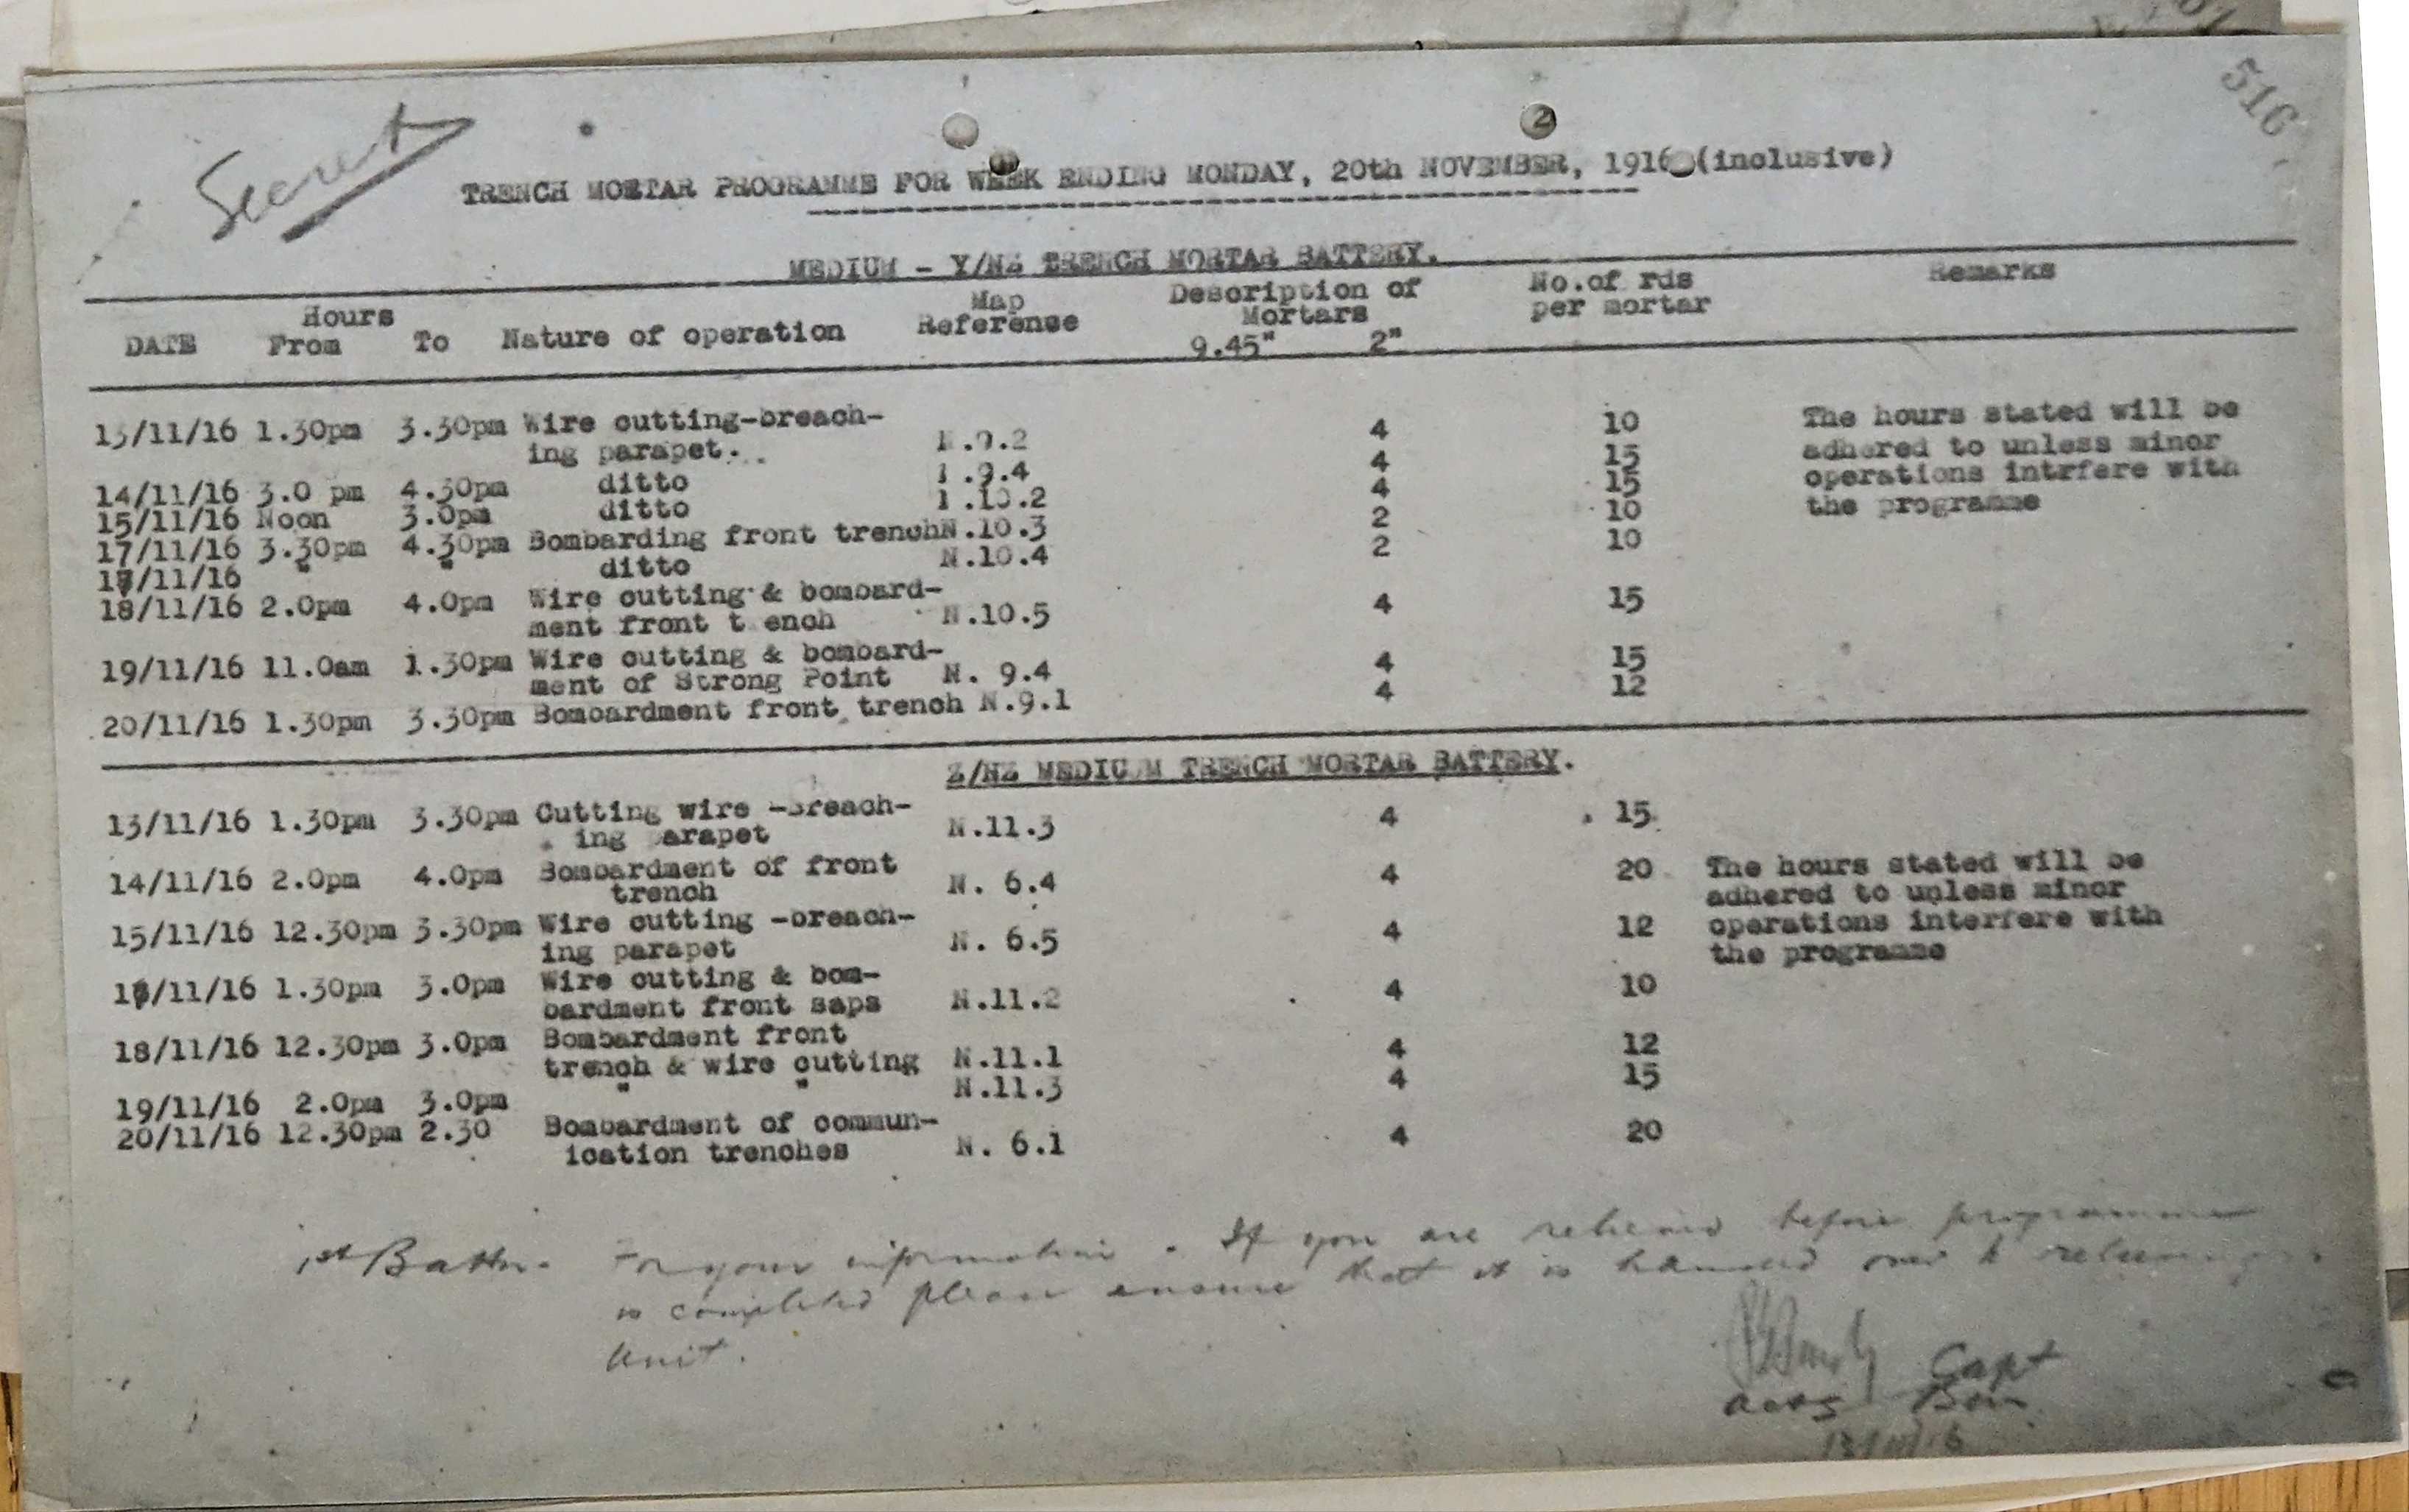 516
Secret
2
TRENCH MORTAR PROGRAMME FOR WEEK ENDING MONDAY, 20th NOVEMBER, 1916 (inclusive)
MEDIUM - Y/NZ TRENCH MORTAR BATTERY.
DATE Hours From To Nature of operation Map Reference Description of Mortars 9.45" 2" No.of rds per mortar Remarks
13/11/16 1.30pm 3.30pm Wire cutting-breach- 4 10 The hours stated will be
ing parapet. N.9.2 4 15 adhered to unless minor
14/11/16 3.0 pm 4.30pm ditto .9.4 4 15 operations intrfere with
15/11/16 Noon 3.0pm ditto .10.2 2 10 the programme
17/11/16 3.30pm 4.30pm Bombarding front trench N.10.3 2 10
17/11/16 " " ditto N.10.4
18/11/16 2.0pm 4.0pm Wire cutting & bombard- 4 15
ment front t ench N.10.5
19/11/16 11.0am 1.30pm Wire cutting & bombard- 4 15
ment of Strong Point N. 9.4 4 12
20/11/16 1.30pm 3.30pm Bombardment front trench N.9.1
Z/NZ MEDIUM TRENCH MORTAR BATTERY.
13/11/16 1.30pm 3.30pm Cutting wire -breach- 4 15
ing parapet N.11.3
14/11/16 2.0pm 4.0pm Bombardment of front 4 20 The hours stated will be
trench N. 6.4 adhered to unless minor
15/11/16 12.30pm 3.30pm Wire cutting -breach- 4 12 operations interfere with
ing parapet N. 6.5 the programme
/11/16 1.30pm 3.0pm Wire cutting & bom- 4 10
bardment front saps N.11.2
18/11/16 12.30pm 3.0pm Bombardment front 4 12
trench & wire cutting N.11.1 4 15
19/11/16 2.0pm 3.0pm " " N.11.3
20/11/16 12.30pm 2.30 Bombardment of commun- 4 20
ication trenches N. 6.1
1st Battn. For your information. If you are relieved before programme
is completed please ensure that it is handed over to relieving
Unit.
Capt
13/11/16